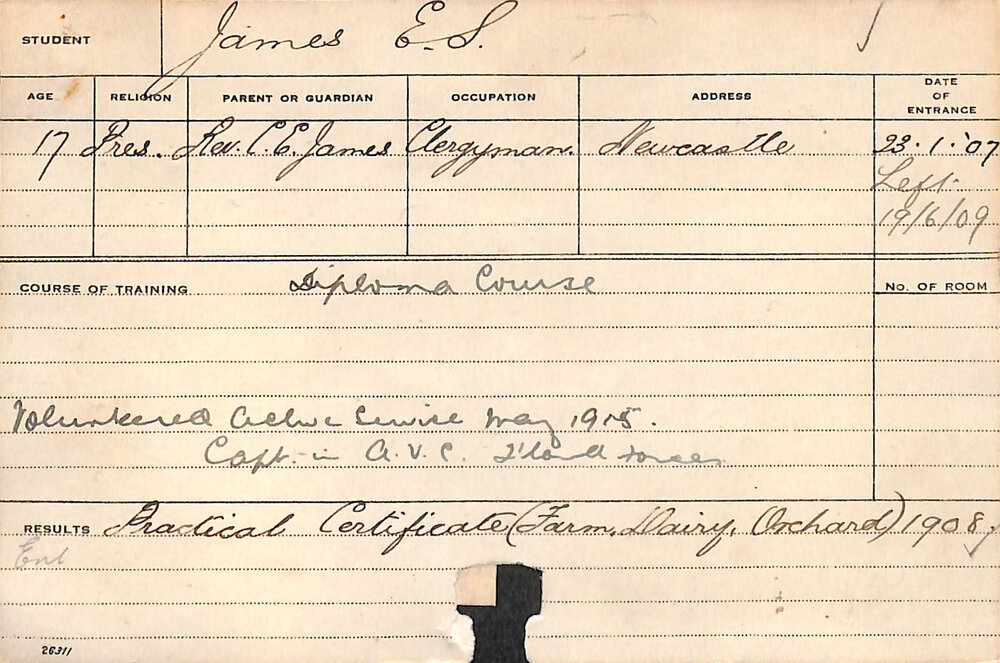 STUDENT James E.S.
AGE RELIGION PARENT OR GUARDIAN OCCUPATION ADDRESS DATE OF ENTRANCE
17 Pres. Rev. C. E. James Clergyman. Newcastle 23.1.'07
Left
19/6/09
COURSE OF TRAINING Diploma Course No. OF ROOM
Volunteered Active Service May 1915.
Capt. in A.V.C.
RESULTS Practical Certificate (Farm, Dairy, Orchard) 1908
Enl
26311